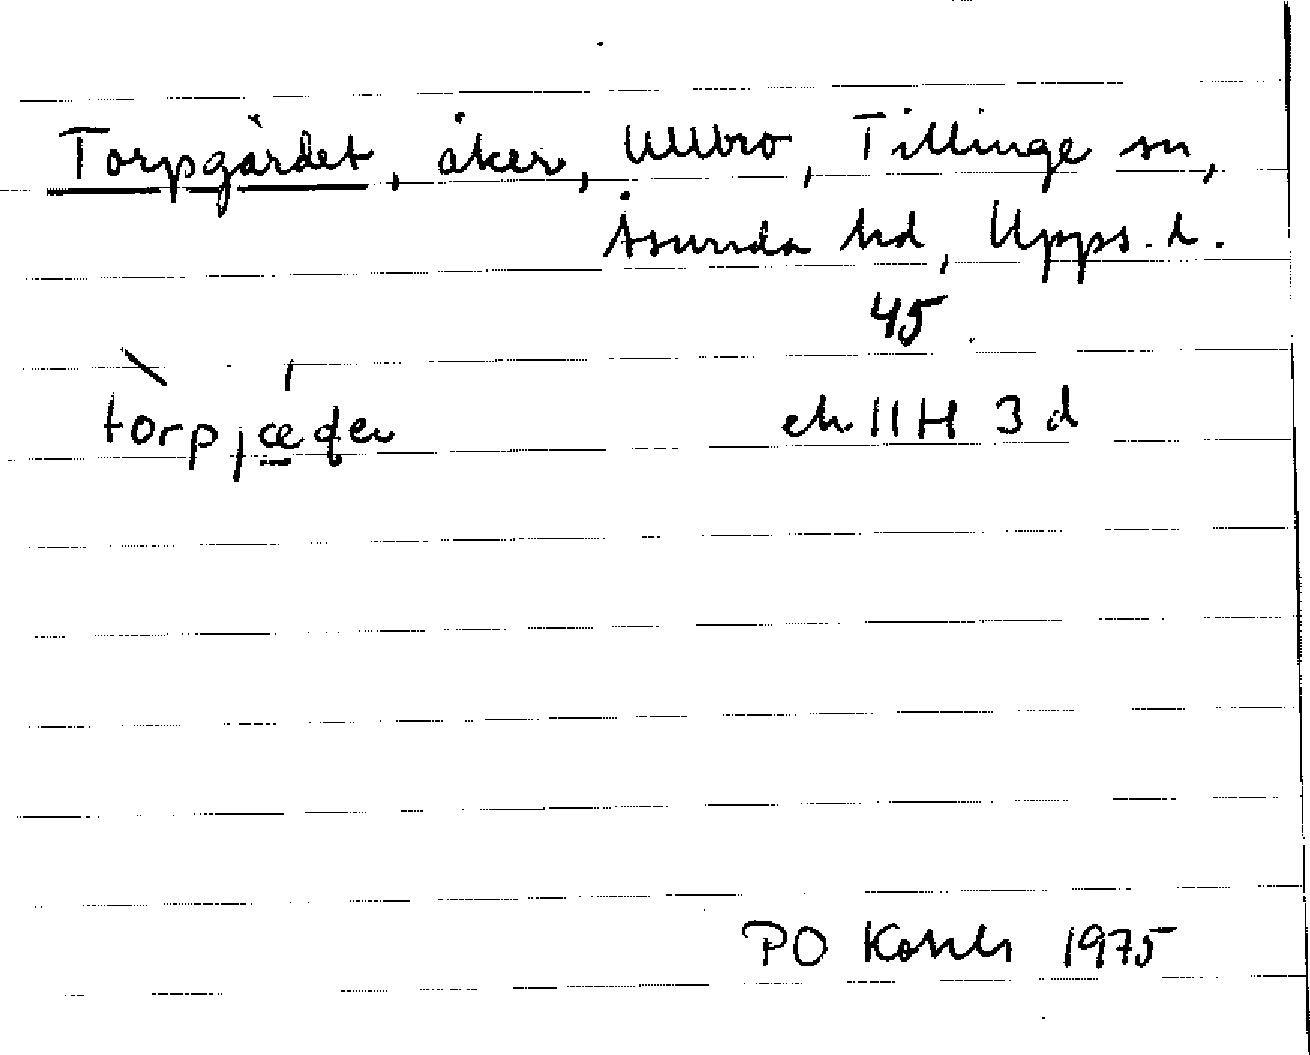 Torpgärdet, åker, Ullbro, Tillinge sn,
Åsunda hd, Upps. l.
45
ek 11H 3 d
PO 1975